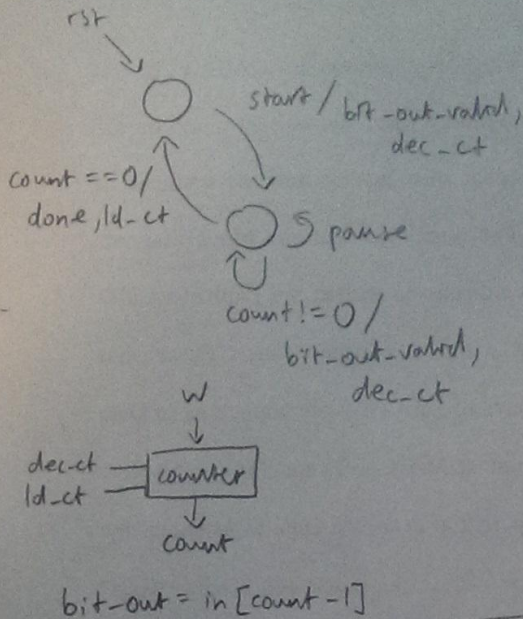 rst
start / bit_out_valid,
dec_ct
count == 0 /
done, ld_ct
pause
count != 0 /
bit_out_valid,
dec_ct
W
dec_ct
ld_ct
counter
count
bit_out = in [count - 1]